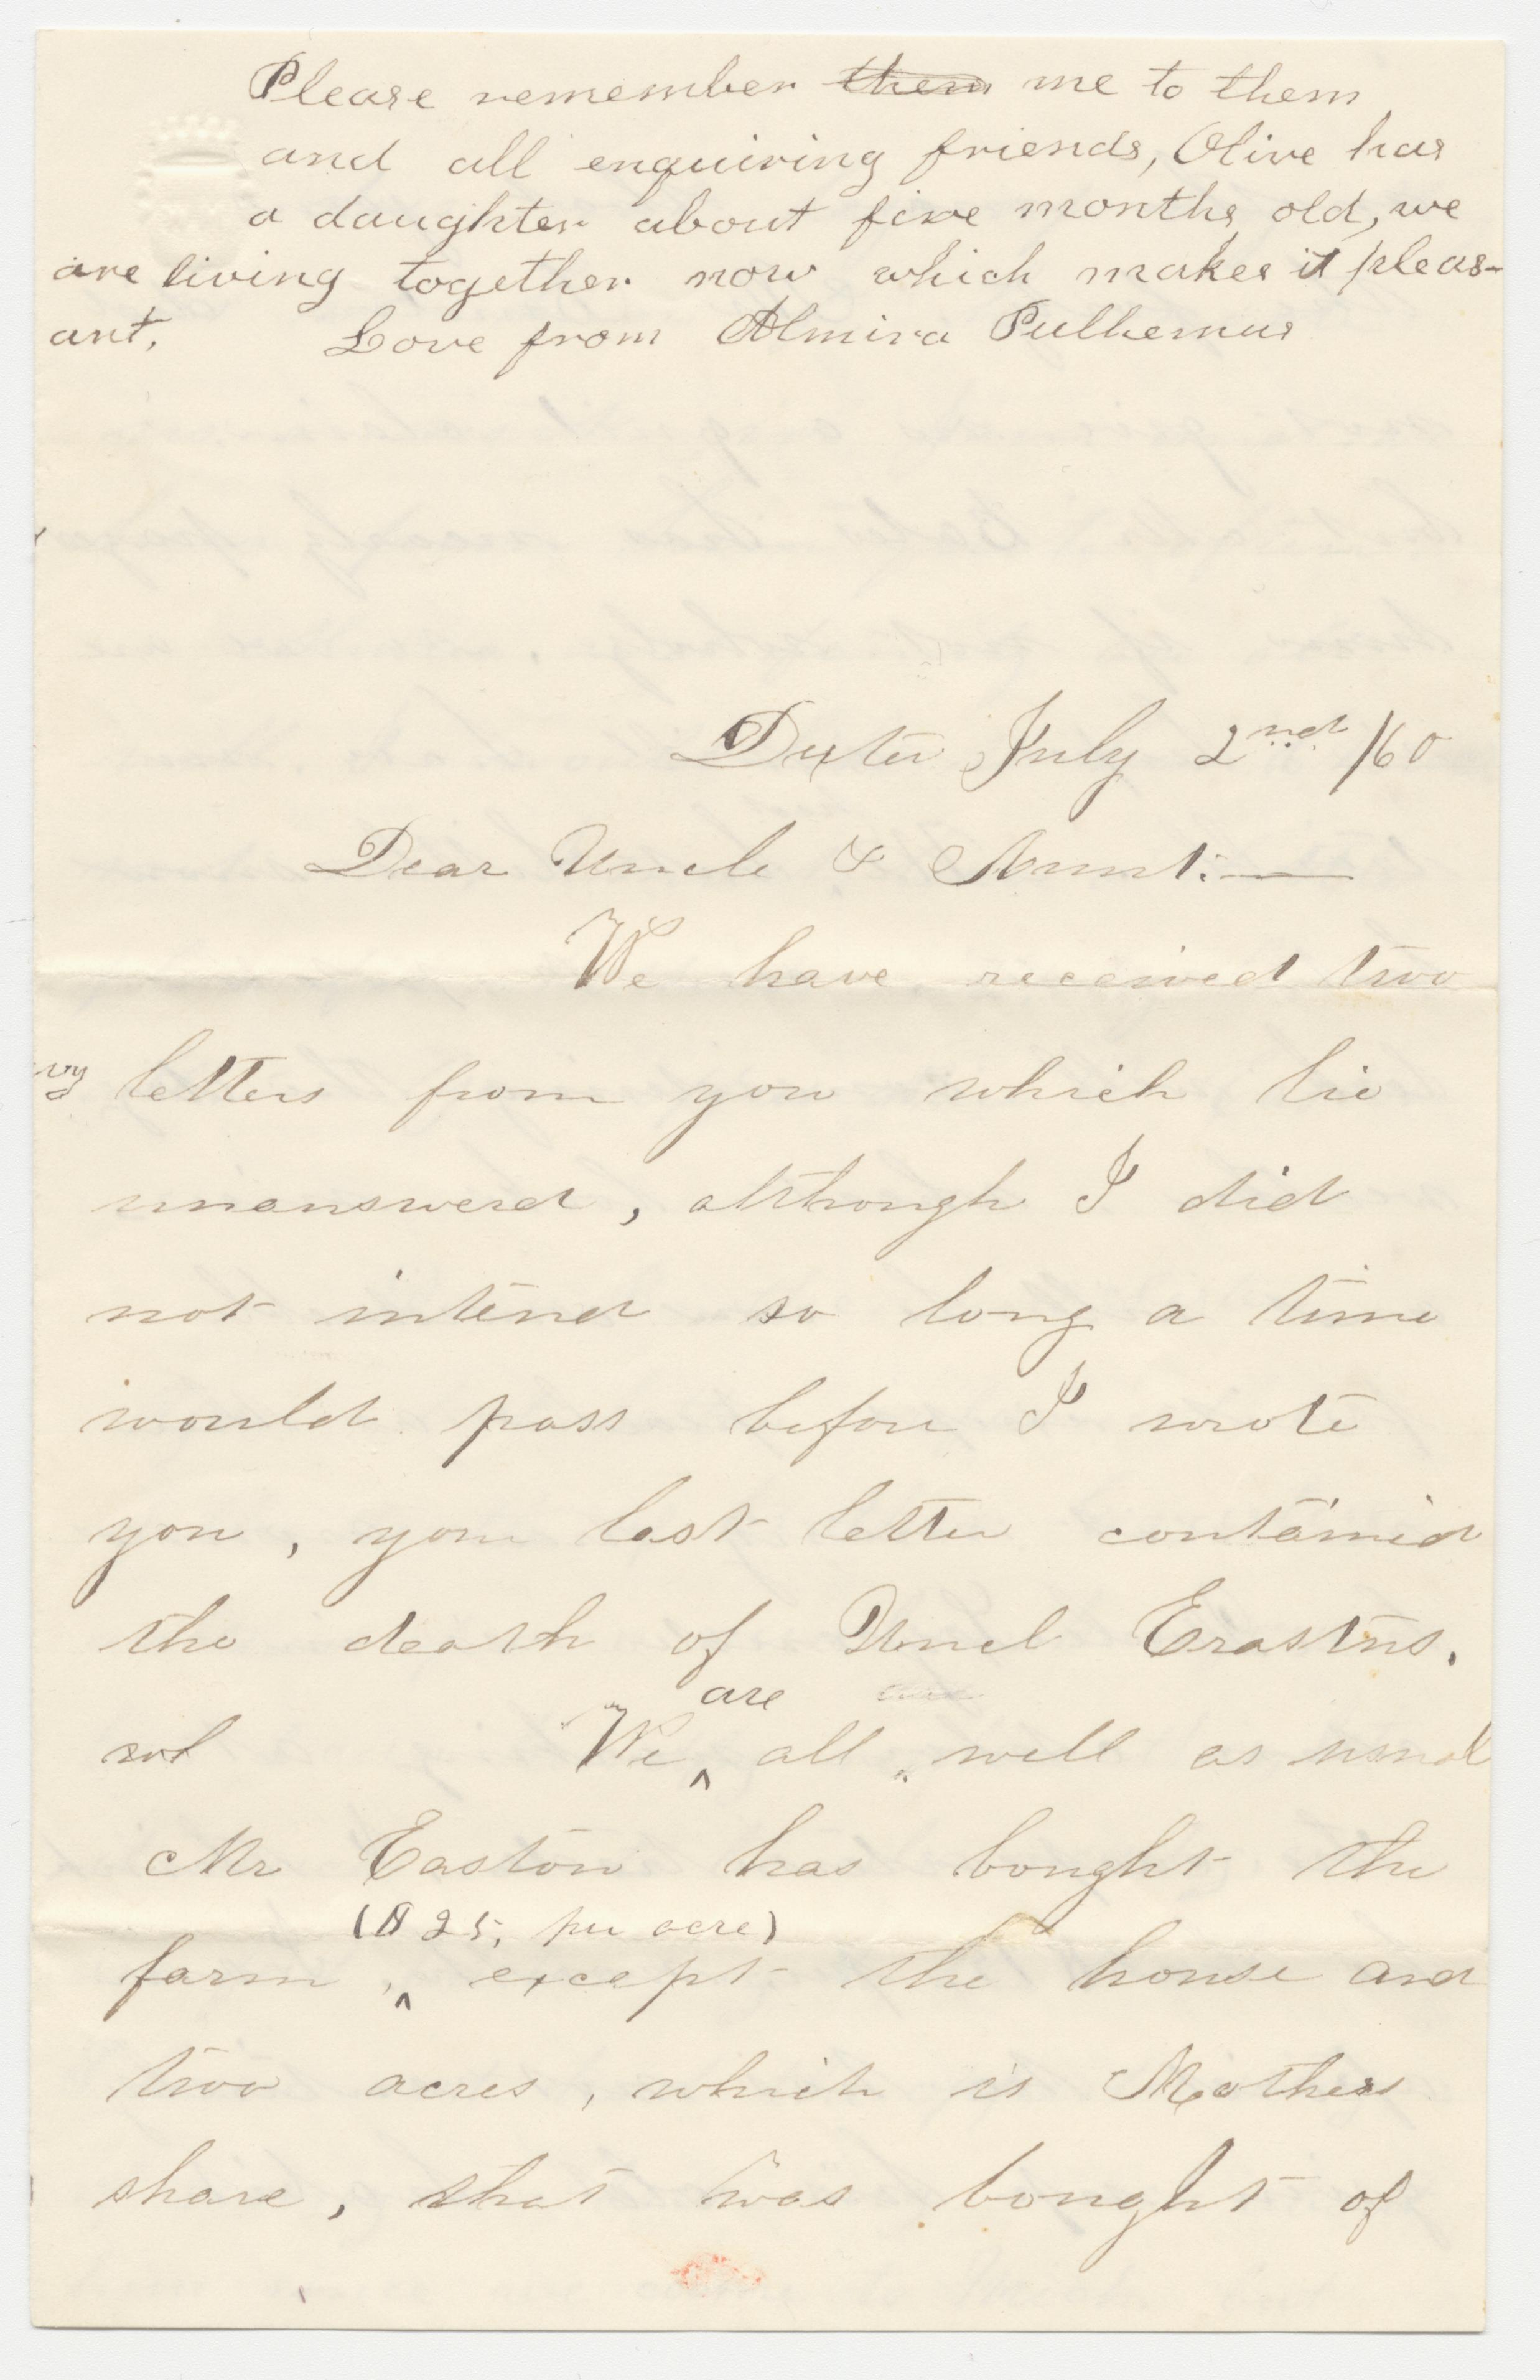 Please remember them me to them
and all enquiring friends, Olive has
a daughter about five months old, we
are living together now which makes it pleas-
ant, Love from Almira Pulhemus
Dexter July 2nd /60
Dear Uncle & Aunt:—
We have received two
letters from you which lie
unanswerd, although I did
not intend so long a time
would pass before I wrote
you, your last letter contained
the death of Uncl Erastus.
are
We ^ all well as usual
Mr Easton has bought the
($25, per acre)
farm, ^ except the house and
two acres, which is Mothers
share, that was bought of